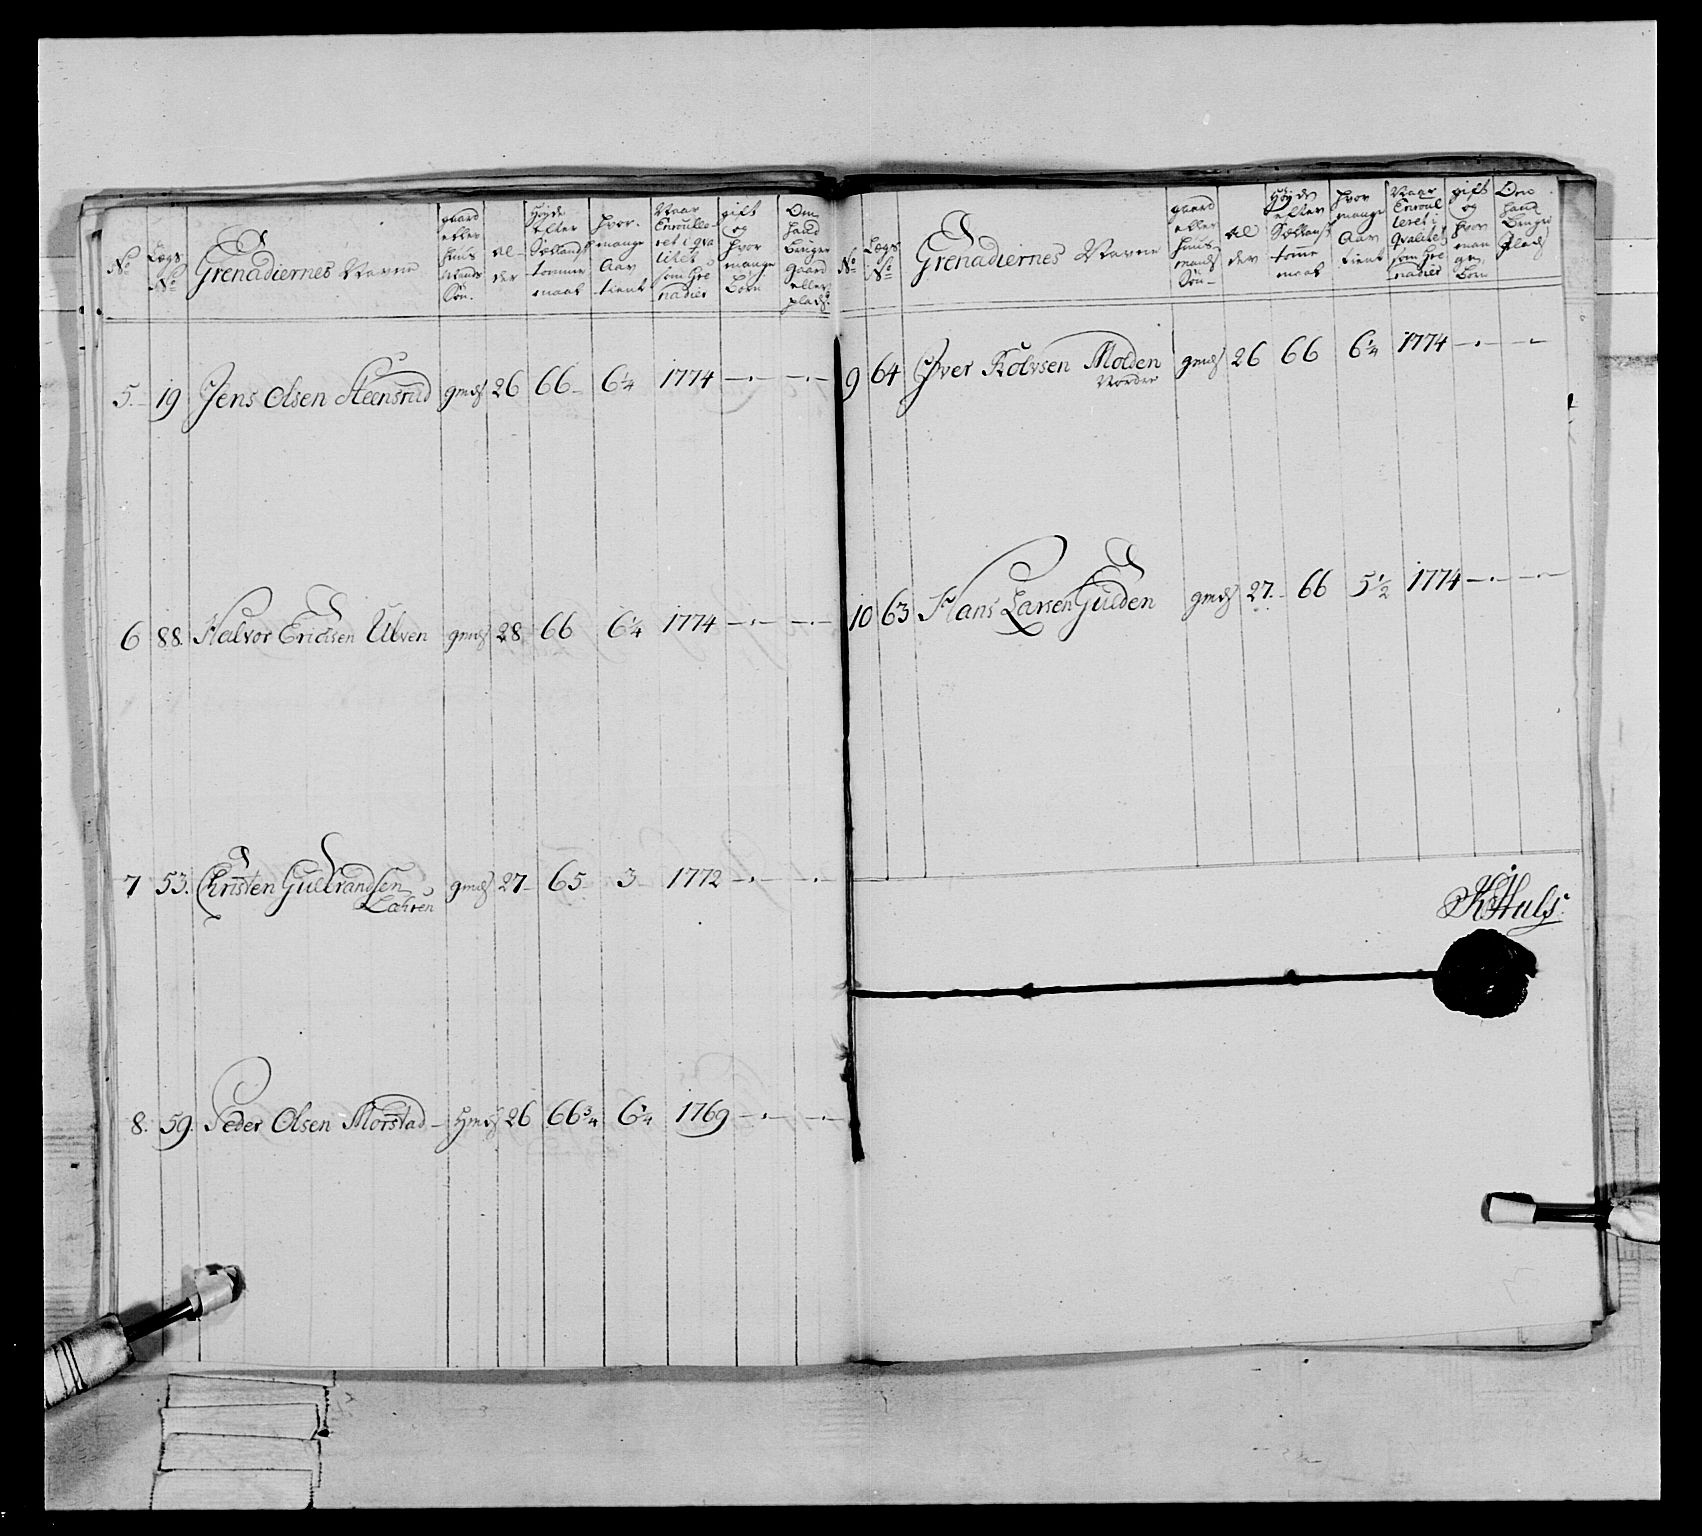 No
Lægs No
Grenadiernes Navne
gaard eller huus mands Søn.
Al-
der
Høyde efter Siællands tomme maal
hvor mange Aar tient
Naar Enroulleret i qvalitet som Grenadier
gift og hvor mange børn
Om hand bruger gaard eller plads.
5. 19 Jens Olsen Steensrud gmds 26 66 6¼ 1774 —.— —.—
6 88. Halvor Ericksen Ulven gmds 28 66 6¼ 1774 —.— —.—
7 53. Christen Gulbrandsen gmds 27 65 3 1772 —.— —.—
Læhren
8. 59. Peder Olsen Morstad Hmds 26 66¾ 6¼ 1769 —.— —.—
No
Lægs No
Grenadiernes Navne
gaard eller huus mands Søn
Al
der
Høyde efter Siællands tomme maal
hvor mange Aar tient
Naar Enroulleret i Qvalitet som Grenadier
gift og hvor mange børn
Om hand bruger Plads
9 64 Iver Kolvsen Molden gmds 26 66 6¼ 1774 —.— —.—
Nordre
10 63 Hans Larsen Gulden gmds 27 66 5½ 1774 —.— —.—
K Huls